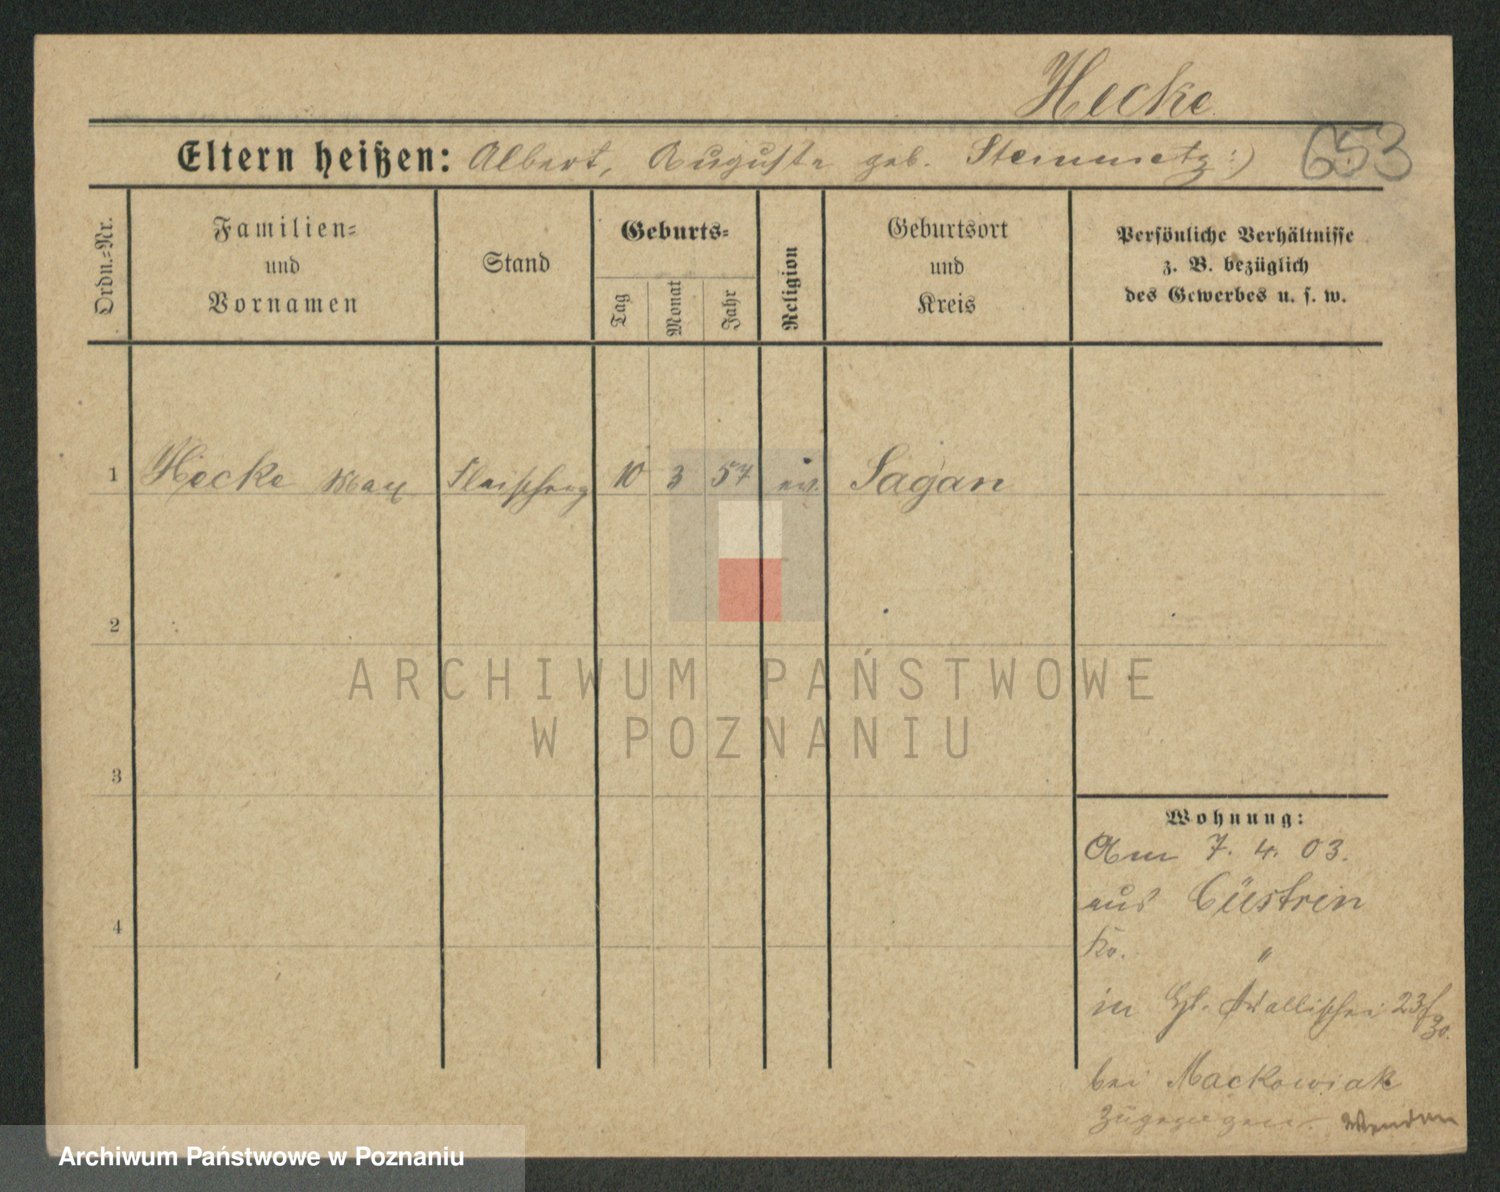 Hecke
653
Eltern heißen: Albert, Auguste geb. Steinmetz :)
Ordn.=Nr.
Familien=
und
Vornamen
Stand
Geburts=
Tag
Monat
Jahr
Religion
Geburtsort
und
Kreis
Persönliche Verhältnisse
z. B. bezüglich
des Gewerbes u. s. w.
1 Hecke Max Fleischerg 10 3 57 ev. Sagan
2
3
4
ARCHIWUM PAŃSTWOWE
W POZNANIU
Wohnung:
Am 7. 4. 03.
aus Cüstrin
Kr. "
in Wallischei 23/30.
bei Mackowiak
zugezogen. Wenden
Archiwum Państwowe w Poznaniu